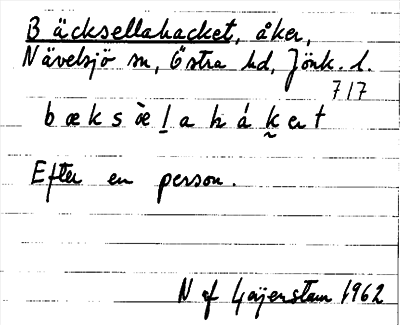 Bäcksellahacket, åker,
Nävelsjö sn, Östra hd, Jönk. l.
717
bæksæ̀l̲ahák̰ət
Efter en person.
N af Geijerstam 1962